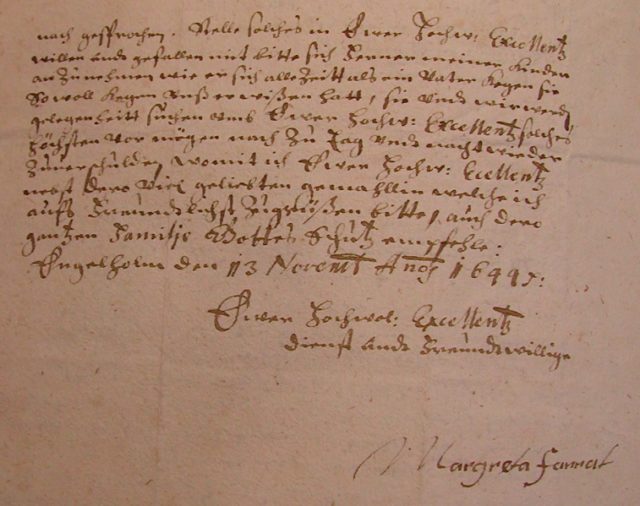 nach gesprochen. Stelle solches in Ewer Hochw: Excellentz
willen undt gefallen mit bitte sich ferner meiner Kinder
anzunehmen wie er sich alle Zeitt als ein Vater kegen sie
So woll kegen unß erwißen hatt, sie undt wir werden
gelegenheitt suchen umb Ewer Hochw: Excellentz solches
höchsten vor mögen nach zu Tag undt nacht wieder
Zuverschulden, womit ich Ewer Hochw: Ecellentz
nebst dero Viel geliebten gemahllin welche ich
aufs freundtlichst Zugrüßen bitte, auch dero
gantzen Familje Gottes Schutz empfehle:
Engelholm den 13 Novemb Anno 1644
Ewer Hochwol: Excellentz
dienst undt freundtwillige
Margreta